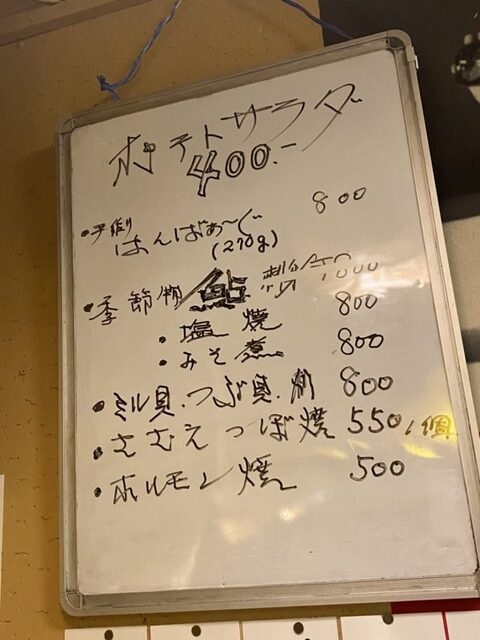 ポテトサラダ
400.-
・手創り はんばぁ〜ぐ 800
(270g)
・季節物 鮎 1000
・塩焼 800
・みそ煮 800
・ミル貝.つぶ貝.刺 800
・さざえつぼ焼 550 1個
・ホルモン焼 500